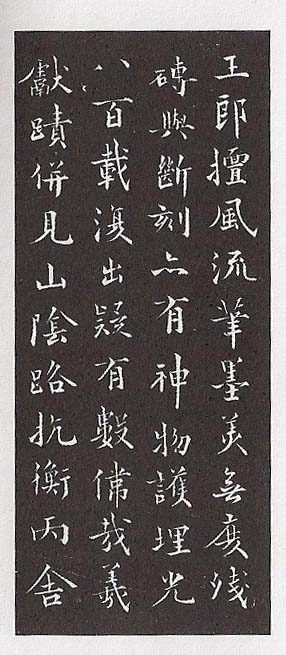 王郎擅風流筆墨美無度殘
磚與斷刻亦有神物護埋光
八百載復出疑有數偉哉羲
獻蹟併見山陰路抗衡丙舍